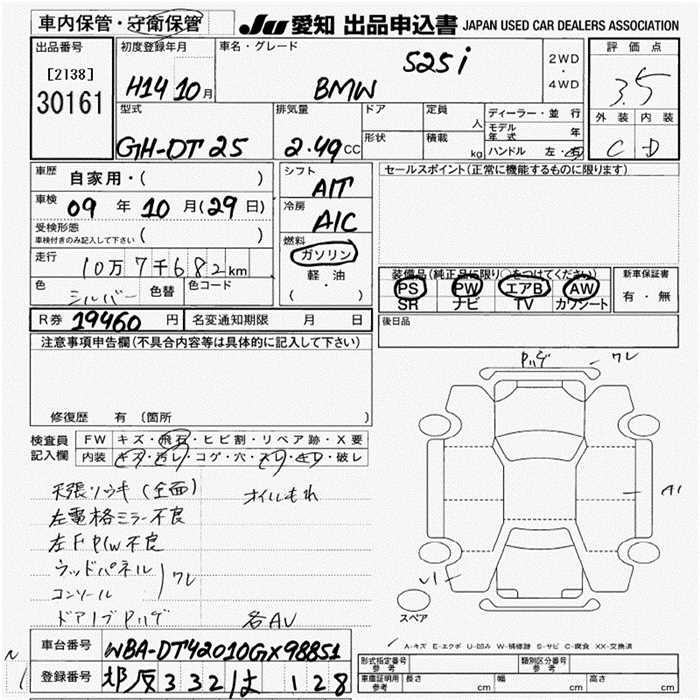 車内保管・守衛保管
JU 愛知 出品申込書 JAPAN USED CAR DEALERS ASSOCIATION
出品番号
[2138]
30161
初度登録年月
H14 10月
車名・グレード
BMW 525i
2WD
・
4WD
評価点
3.5
外装 内装
C D
型式
GH-DT25
排気量
2.49CC
ドア
形状
定員 人
積載 kg
ディーラー・並行
モデル年式 年
ハンドル 左・右
車歴 自家用・( )
車検 09年10月(29日)
受検形態
車検付きのみ記入して下さい ( )
走行 10万7千682km
色 シルバー 色替 色コード
シフト
A/T
冷房
A/C
燃料
ガソリン
軽・油
( ・ )
セールスポイント(正常に機能するものに限ります)
装備品(純正品に限り○をつけてください)
PS PW エアB AW
SR ナビ TV カワシート
新車保証書
有・無
R券 19460円 名変通知期限 月 日
後日品
注意事項申告欄(不具合内容等は具体的に記入して下さい)
修復歴 有 (箇所 )
検査員記入欄
FW キズ・飛石・ヒビ割・リペア跡・X要
内装 キズ・汚レ・コゲ・穴・スレ・キレ・破レ
天張ソウキ(全面) オイルもれ
左電格ミラー不良
左F P/W不良
ウッドパネル
コンソール ワレ
各AU
ワレ
A1
スペア
A-キズ E-エクボ U-凹み W-補修跡 S-サビ C-腐食 XX-交換済
車台番号 WBA-DT42010GX98851
登録番号 332は128
形式指定番号 参考
類別区分番号 参考
車庫証明用 参考 長さ cm 幅 cm 高さ cm